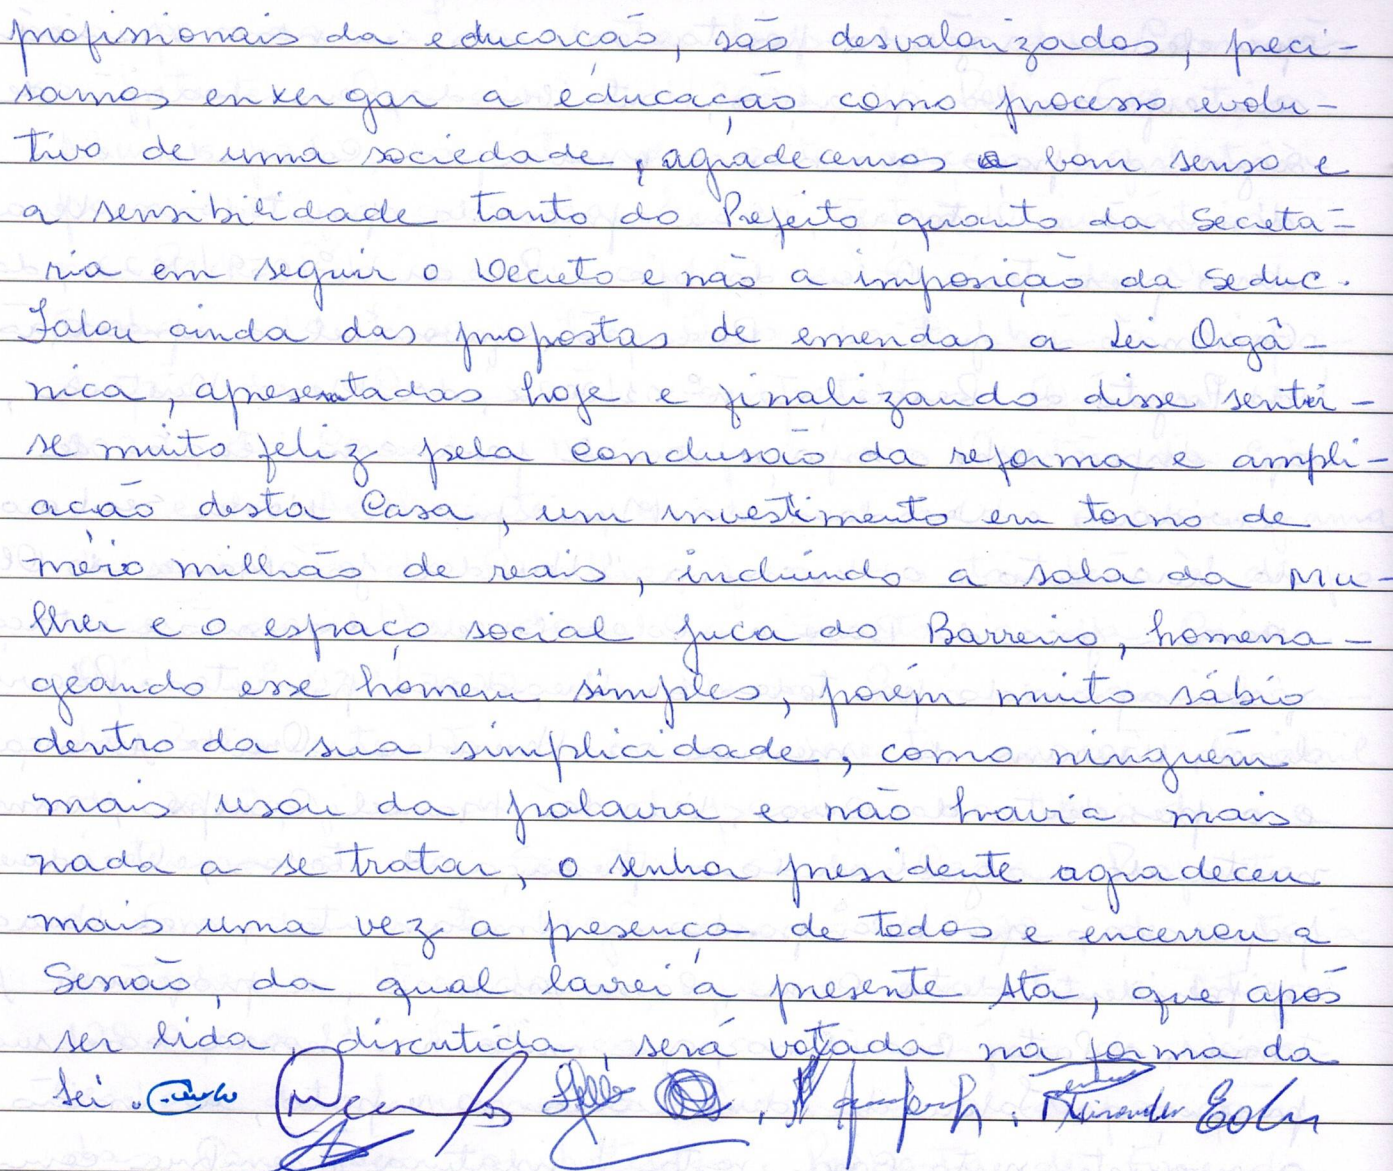 profissionais da educação, são desvalorizados, preci-
samos enxergar a educação como processo evolu-
tivo de uma sociedade, agradecemos o bom senso e
a sensibilidade tanto do Prefeito quanto da Secretá-
ria em seguir o Decreto e não a imposição da Seduc.
Falou ainda das propostas de emendas a Lei Orgâ-
nica, apresentadas hoje e finalizando disse sentir-
se muito feliz pela conclusão da reforma e ampli-
ação desta Casa, um investimento em torno de
meio milhão de reais, incluindo a sala da Mu-
lher e o espaço social Juca do Barreiro, homena-
geando esse homem simples, porém muito sábio
dentro da sua simplicidade, como ninguém
mais usou da palavra e não havia mais
nada a se tratar, o senhor presidente agradeceu
mais uma vez a presença de todos e encerrou a
Sessão, da qual lavrei a presente Ata, que após
ser lida, discutida, será votada na forma da
Lei.